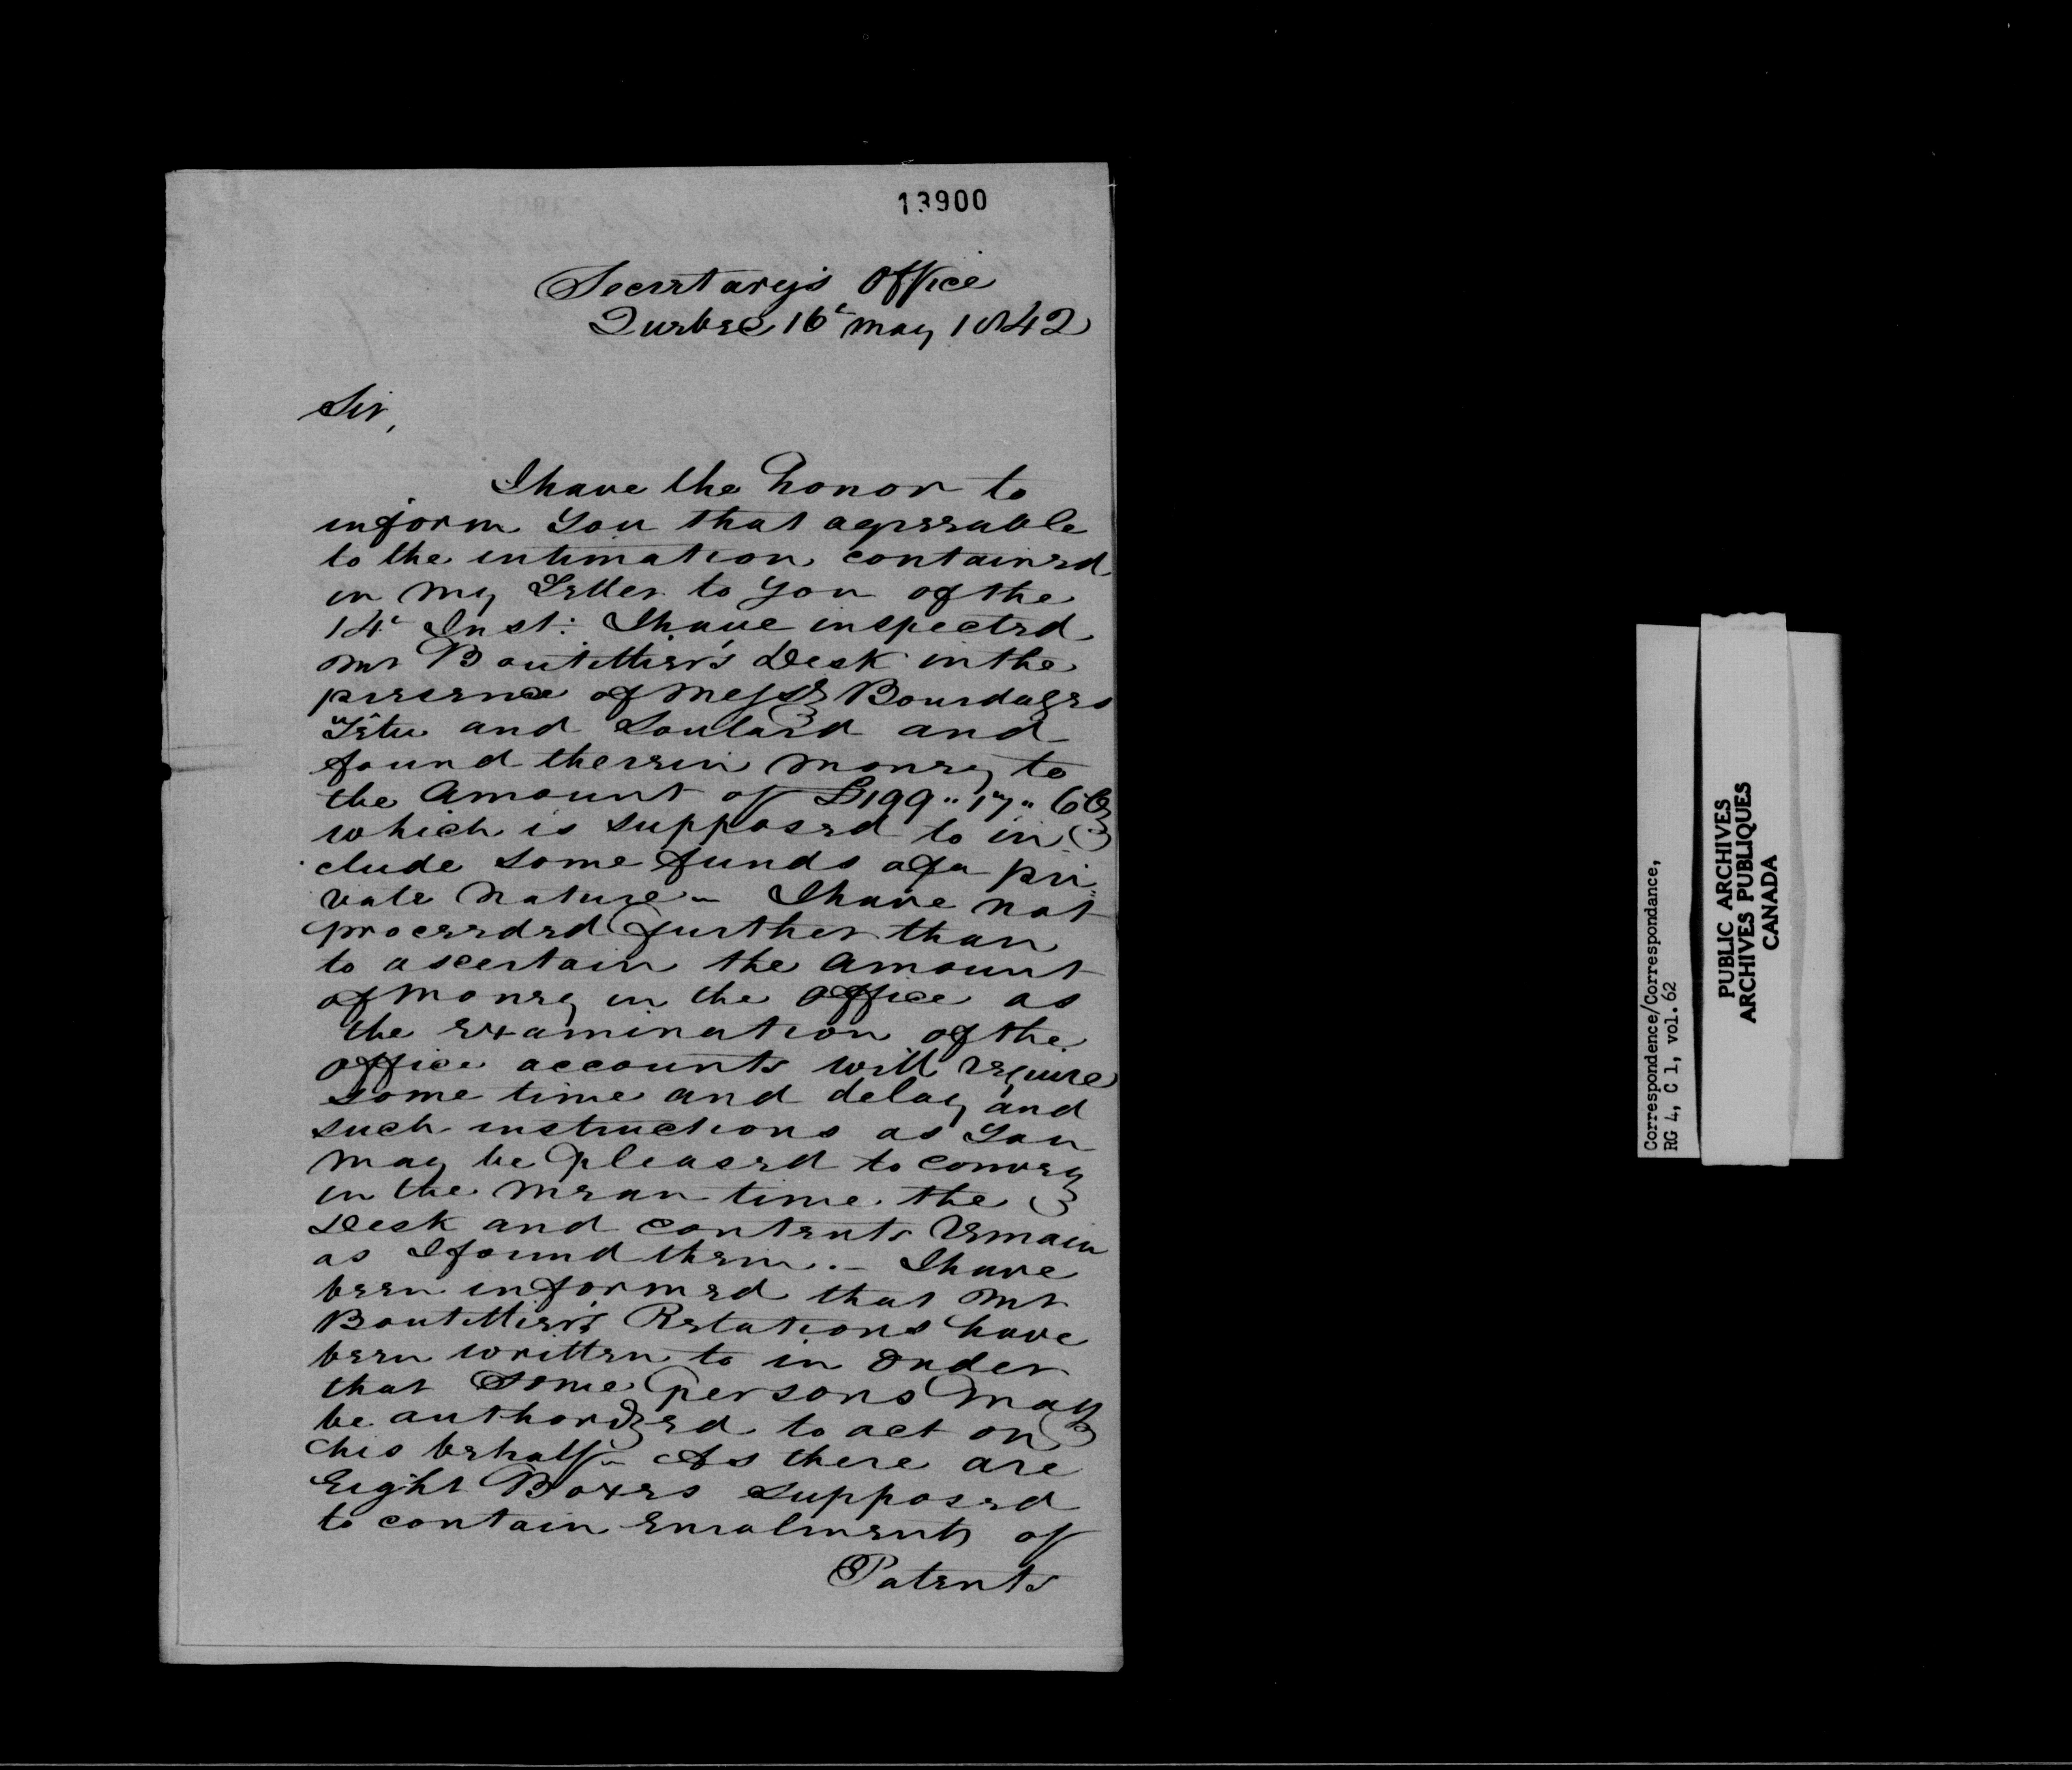 13900
Secretary's Office
Quebec 16t May 1842
Sir,
I have the honor to
inform You that agreeable
to the intimation contained
in my Letter to You of the
14t Inst: I have inspected
Mr Boutillier's Desk in the
presence of Messrs Bourdages
Têtu and Soulard and
found therein money to
the Amount of £199 " 17 " 6
which is supposed to in-
clude some funds of a pri-
vate Nature - I have not
proceeded further than
to ascertain the Amount
of Money in the Office as
the Examination of the
Office accounts will require
some time and delay and
such instructions as You
may be pleased to convey
in the mean time the
Desk and contents remain
as I found them. - I have
been informed that Mr
Boutillier's Relations have
been written to in Order
that some persons may
be authorized to act on
his behalf - As there are
Eight Boxes supposed
to contain Enrolments of
Patents
Correspondence/Correspondance,
RG 4, C 1, vol. 62
PUBLIC ARCHIVES
ARCHIVES PUBLIQUES
CANADA